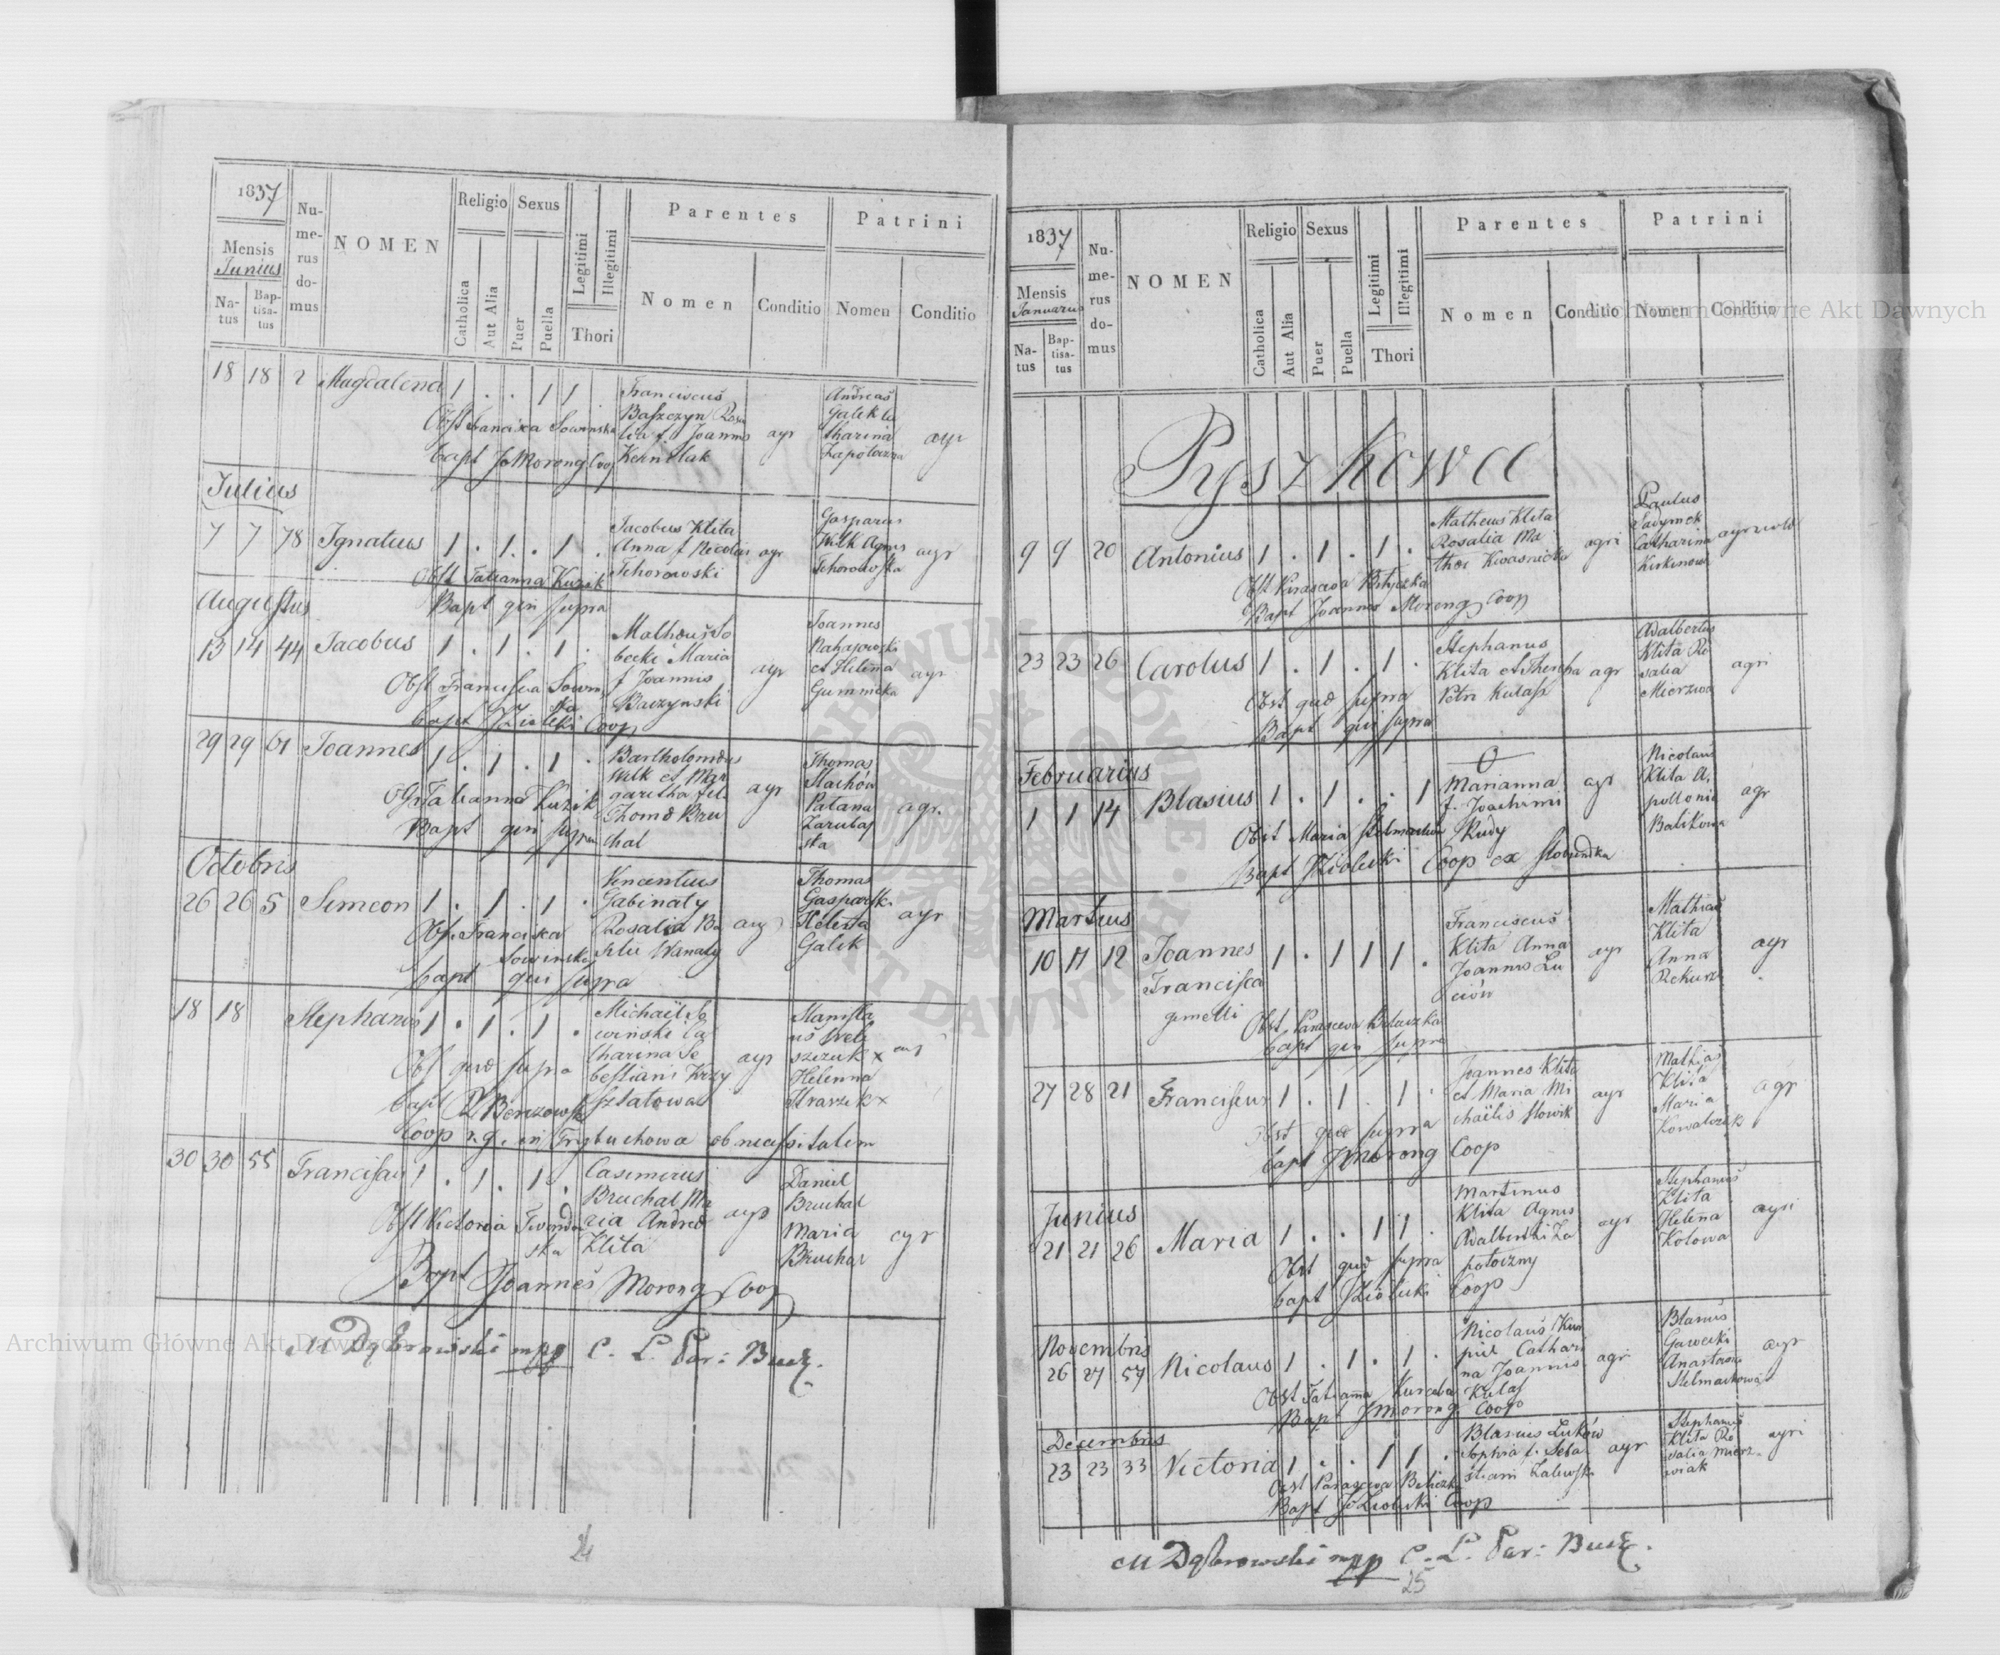 1837
Mensis
Junius
Na-
tus
Bap-
tisa-
tus
Nu-
me-
rus
do-
mus
NOMEN
Religio
Catholica
Aut Alia
Sexus
Puer
Puella
Legitimi
Illegitimi
Thori
Parentes
Nomen
Conditio
Patrini
Nomen
Conditio
18 18 2 Magdalena 1 . . 1 1 .
Franciscus
Baszczyn Rosa
lia f. Joannis
agr
Andreas
Galek Ca
tharina
agr
Obst Francisca Sowinska
bapt J Morong Coop
Julius
7 7 78 Ignatius 1 . 1 . 1 .
Jacobus Klita
Anna f Nicolai
Tchorowski
agr
Gasparus
Wilk Agnes
Tchorowska
agr
Obst Tatianna Kuzik
Bapt qui supra
Augustus
13 14 44 Jacobus 1 . 1 . 1 .
becki Maria
f Joannis
Baczynski
agr
Joannes
et Helena
agr
Obst Francisca Sowins
ka
bapt J Ziolecki Coop
29 29 61 Joannes 1 . 1 . 1 .
Bartholomeus
Wilk et Mar
garetha fil.
Thoma Bru
chal
agr
Thomas
Stachów
agr.
Obst Tatianna Kuzik
Bapt qui supra
Octobris
26 26 5 Simeon 1 . 1 . 1 .
Vincentius
Gabinaty
agr
Thomas
Helena
Galik
agr
Obst. Francisca
Sowinska
bapt qui supra
18 18 Stephanus 1 . 1 . 1 .
Michaël So
winski Ca
tharina Se
bestiani Krzy
sztatowa
agr
Stanisla
us
Helenna
Obst quae supra
bapt
Coop r.g. in Trybuchowa ob necessitatem
30 30 55 Franciscus 1 . 1 . 1 .
Casimirus
Bruchal Ma
ria Andreæ
Klita
agr
Daniel
Bruchal
Maria
Bruchal
agr
Obst Victoria Twardo
ska
Bapt Joannes Morong Coop
M Dąbrowski mpp C. L. Par: Bucz.
24
1837
Mensis
Januarius
Na-
tus
Bap-
tisa-
tus
Nu-
me-
rus
do-
mus
NOMEN
Religio
Catholica
Aut Alia
Sexus
Puer
Puella
Legitimi
Illegitimi
Thori
Parentes
Nomen
Conditio
Patrini
Nomen
Conditio
Pyszkowce
9 9 20 Antonius 1 . 1 . 1 .
Matheus Klita
Rosalia Ma
agri
Paulus
Catharina
Obst Parasceva
Bapt Joannes Morong Coop
23 23 26 Carolus 1 . 1 . 1 .
Stephanus
Klita et Theresia
Petri Kulas
agr
Adalbertus
Klita Ro
salia
Mierzwa
agri
Obst quae supra
Bapt qui supra
Februarius
1 1 14 Blasius 1 . 1 . . 1
O
Marianna
f. Joachimi
Rudy
agr
Nicolaus
Klita A.
pollonia
Balikowa
agr
Obst Maria Stelmachow
Bapt J Ziolecki Coop ex
Martius
10 11 12 Joannes 1 . 1 1 1 .
Francisca
gemelli
Franciscus
Klita Anna
Joannis Lu
ków
agr
Mathias
Klita
Anna
agr
Obst Parasceva
bapt qui supra
27 28 21 Franciscus 1 . 1 . 1 .
Joannes Klita
et Maria Mi
chaëlis Slowik
agr
Mathias
Klita
Maria
Kowalczuk
agr
Obst quae supra
bapt J Morong Coop
Junius
21 21 26 Maria 1 . . 1 1 .
Martinus
Klita Agnes
Adalberti Za
potoczny
agr
Stephanus
Klita
Helena
Kotowa
agri
Obst quae supra
bapt J Ziolecki Coop
Novembris
26 27 57 Nicolaus 1 . 1 . 1 .
Nicolaus Kur
piel Cathari
na Joannis
Kulas
agri
Blasius
Gawecki
Anastasia
Stelmachowa
agr
Obst Tatianna
Bapt J Morong Coop
Decembris
23 23 33 Victoria 1 . . 1 1 .
Blasius Luków
Sophia f. Seba
stiani Zalewski
agr
Stephanus
Klita Ro
salia Mierz
wiak
agri
Obst Parasceva
Bapt J Ziolecki Coop
M Dąbrowski mpp C. L. Par: Bucz.
25
Archiwum Główne Akt Dawnych
Archiwum Główne Akt Dawnych
ARCHIWUM GŁÓWNE AKT DAWNYCH